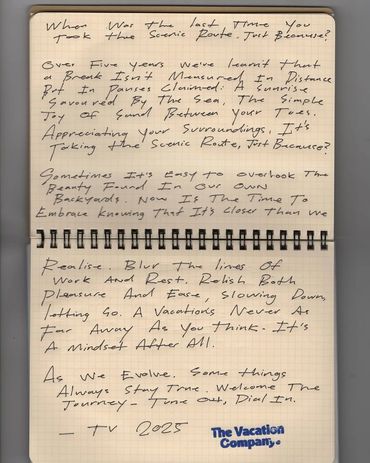 When Was the last Time You
Took the Scenic Route. Just Because?
Over Five years we've learnt that
a Break Isn't Measured In Distance
But In Pauses Claimed: A Sunrise
Savoured By The Sea, The Simple
Joy Of Sand Between Your Toes.
Appreciating Your Surroundings, It's
Taking the Scenic Route, Just Because?
Sometimes It's Easy to Overlook The
Beauty Found In Our Own
Backyards. Now Is The Time To
Embrace Knowing That It's Closer Than We
Realise. Blur The lines Of
Work And Rest. Relish Both
Pleasure And Ease, Slowing Down,
letting Go. A Vacations Never As
Far Away As You Think. It's
A Mindset After All.
As We Evolve. Some things
Always Stay True. Welcome The
Journey - Tune Out, Dial In.
- TV 2025
The Vacation
Company.